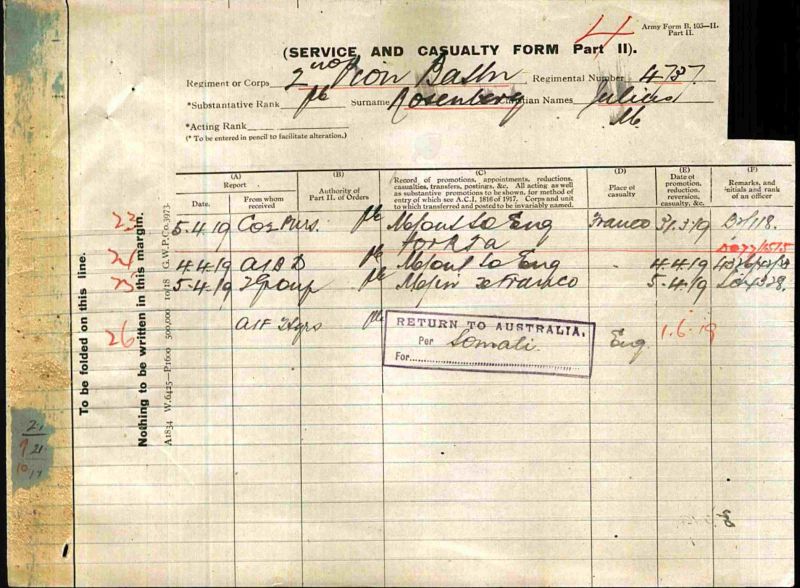 4
Army Form B. 103—II.
Part II.
(SERVICE AND CASUALTY FORM Part II).
Regiment or Corps 2nd Pion Battn Regimental Number 4737
*Substantive Rank Pte Surname Rosenberg Christian Names Julius
M.
*Acting Rank
(* To be entered in pencil to facilitate alteration.)
(A)
Report
Date.
From whom received
(B)
Authority of Part II. of Orders
(C)
Record of promotions, appointments, reductions, casualties, transfers, postings, &c. All acting as well as substantive promotions to be shown, for method of entry of which see A.C.I. 1816 of 1917. Corps and unit to which transferred and posted to be invariably named.
(D)
Place of casualty
(E)
Date of promotion, reduction, reversion, casualty, &c.
(F)
Remarks, and initials and rank of an officer
23 5.4.19 Pte M/out to Eng France 31.3.19
for RTA
24 4.4.19 Pte M/out to Eng " 4.4.19
25 5.4.19 2 Group Pte M/in ex France 5.4.19
26 AIF Hqrs Pte
RETURN TO AUSTRALIA.
Per Somali.
For
Eng. 1.6.19
To be folded on this line.
Nothing to be written in this margin.
A1834 W.6425—P1600 500,000 10/18 G.W.P.Co. 3973.
21
9 21
10/17